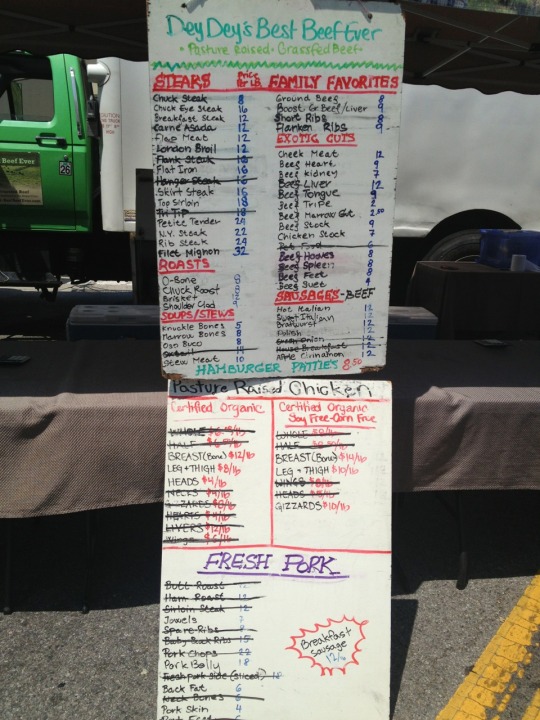 Dey Dey's Best Beef Ever
• Pasture Raised • Grassfed Beef •
STEAKS Price Per LB.
Chuck Steak 8
Chuck Eye Steak 16
Breakfast Steak 12
Carne Asada 12
Flap Meat 12
London Broil 12
Flank Steak 16
Flat Iron 16
Hanger Steak 16
Skirt Steak 15
Top Sirloin 18
Tri Tip 18
Petite Tender 24
N.Y. Steak 22
Rib Steak 24
Filet Mignon 32
ROASTS
O-Bone
Chuck Roast
Brisket
Shoulder Clod
SOUPS/STEWS
Knuckle Bones 5
Marrow Bones 8
Oso Buco 8
Oxtail 14
Stew Meat 10
FAMILY FAVORITES
Ground Beef 8
Boost Gr Beef/Liver 8
Short Ribs 8
Flanken Ribs 9
EXOTIC CUTS
Cheek Meat 12
Beef Heart 9
Beef Kidney 7
Beef Liver 12
Beef Tongue 9
Beef Tripe 2
Beef Marrow Gut 2.50
Beef Stock 9
Chicken Stock 7
Pet Food 6
Beef Hooves 8
Beef Spleen 8
Beef Feet 8
Beef Suet 9
SAUSAGES-BEEF
Hot Italian 12
Sweet Italian 12
Bratwurst 12
Polish 12
Onion 12
House Breakfast 12
Apple Cinnamon 12
HAMBURGER PATTIES 8.50
Pasture Raised Chicken
Certified Organic
WHOLE
HALF
BREAST (Bone) $12/lb
LEG + THIGH $8/lb
HEADS $4/lb
NECKS $4/lb
GIZZARDS $8/lb
HEARTS
LIVERS $12/lb
Wings $6/lb
Certified Organic
Soy Free-Corn Free
WHOLE
HALF
BREAST (Bone) $14/lb
LEG + THIGH $10/lb
WINGS $8/lb
HEADS
GIZZARDS $10/lb
FRESH PORK
Butt Roast 12
Ham Roast 12
Sirloin Steak 12
Jowels 7
Spare Ribs 8
Baby Back Ribs 15
Pork Chops 22
Pork Belly 18
Fresh Pork side (sliced) 18
Back Fat 6
Neck Bones 6
Pork Skin 4
Breakfast
Sausage
12/lb
CAUTION
26
Beef Ever